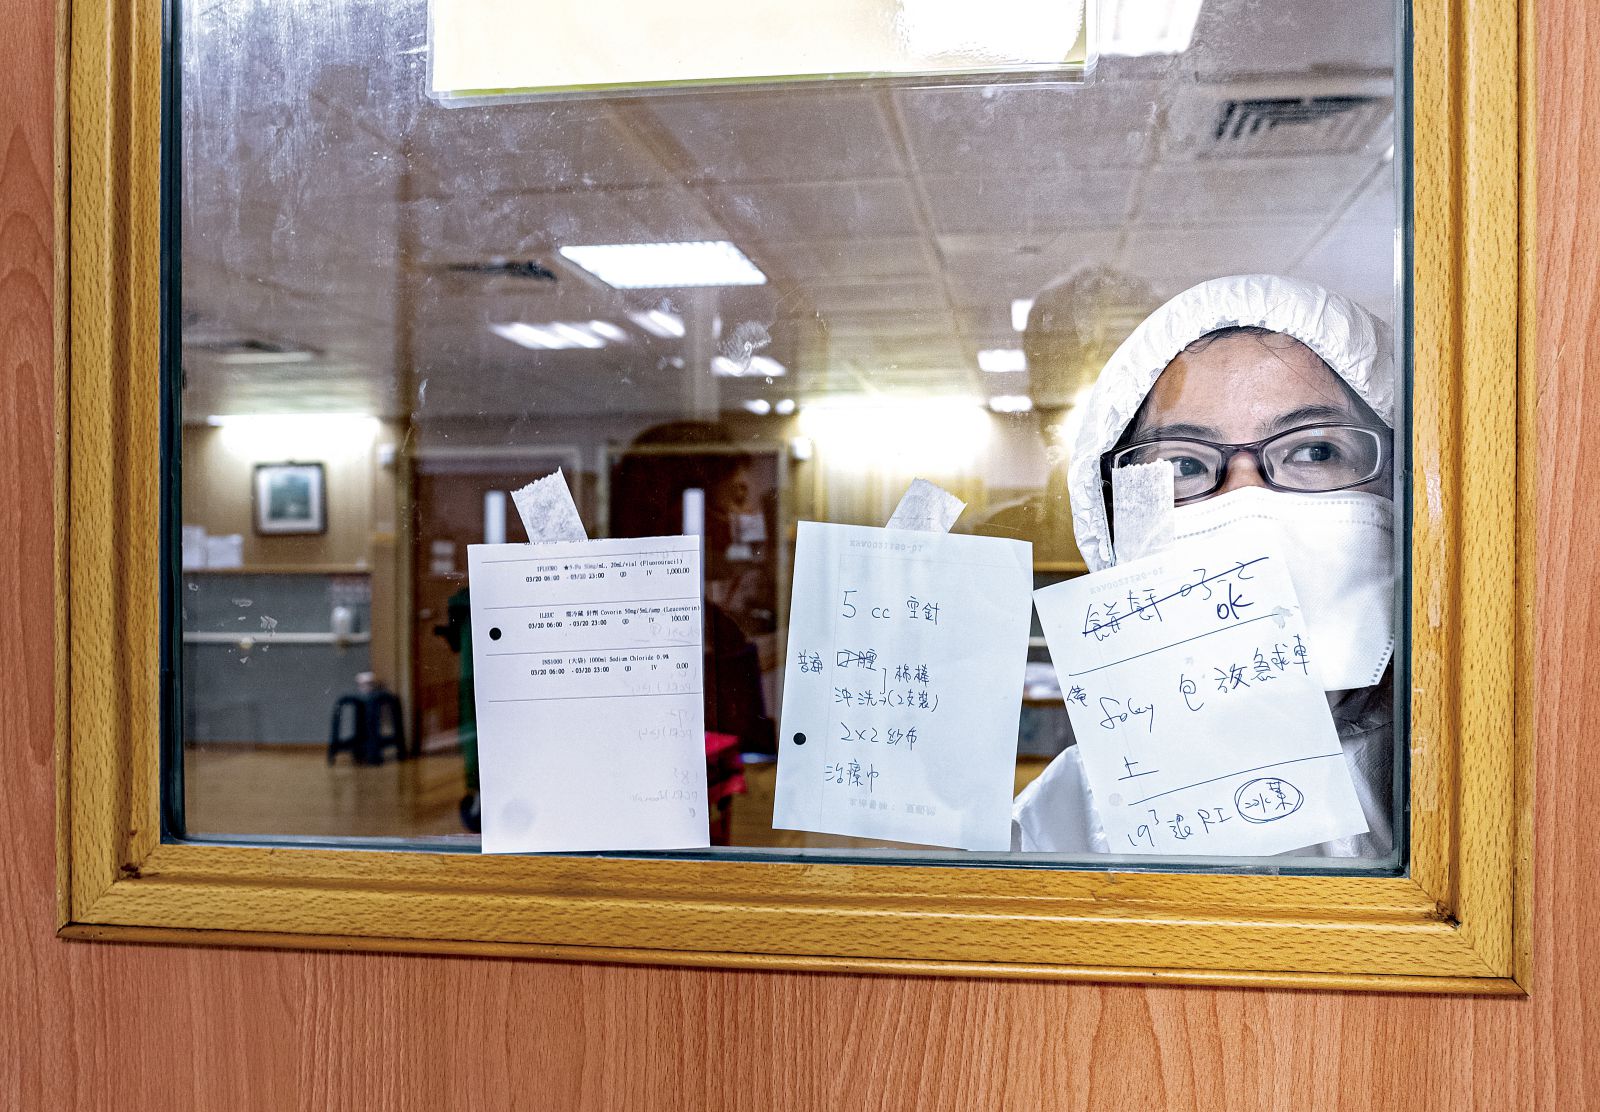 IFLUORO ★5-Fu 50mg/mL, 20mL/vial (Fluorouracil)
03/20 06:00 - 03/20 23:00 QD IV 1,000.00
ILEUC 需冷藏 針劑 Covorin 50mg/5mL/amp (Leucovorin)
03/20 06:00 - 03/20 23:00 QD IV 100.00
INS1000 (大袋) 1000ml Sodium Chloride 0.9%
03/20 06:00 - 03/20 23:00 QD IV 0.00
KYA0021150-01
5 cc 空針
普通 口腔 棉棒
沖洗 (2支裝)
2×2 紗布
治療巾
KYA0021150-01
OK
備 foley 包 放急救車
上
退 RI 冰藥